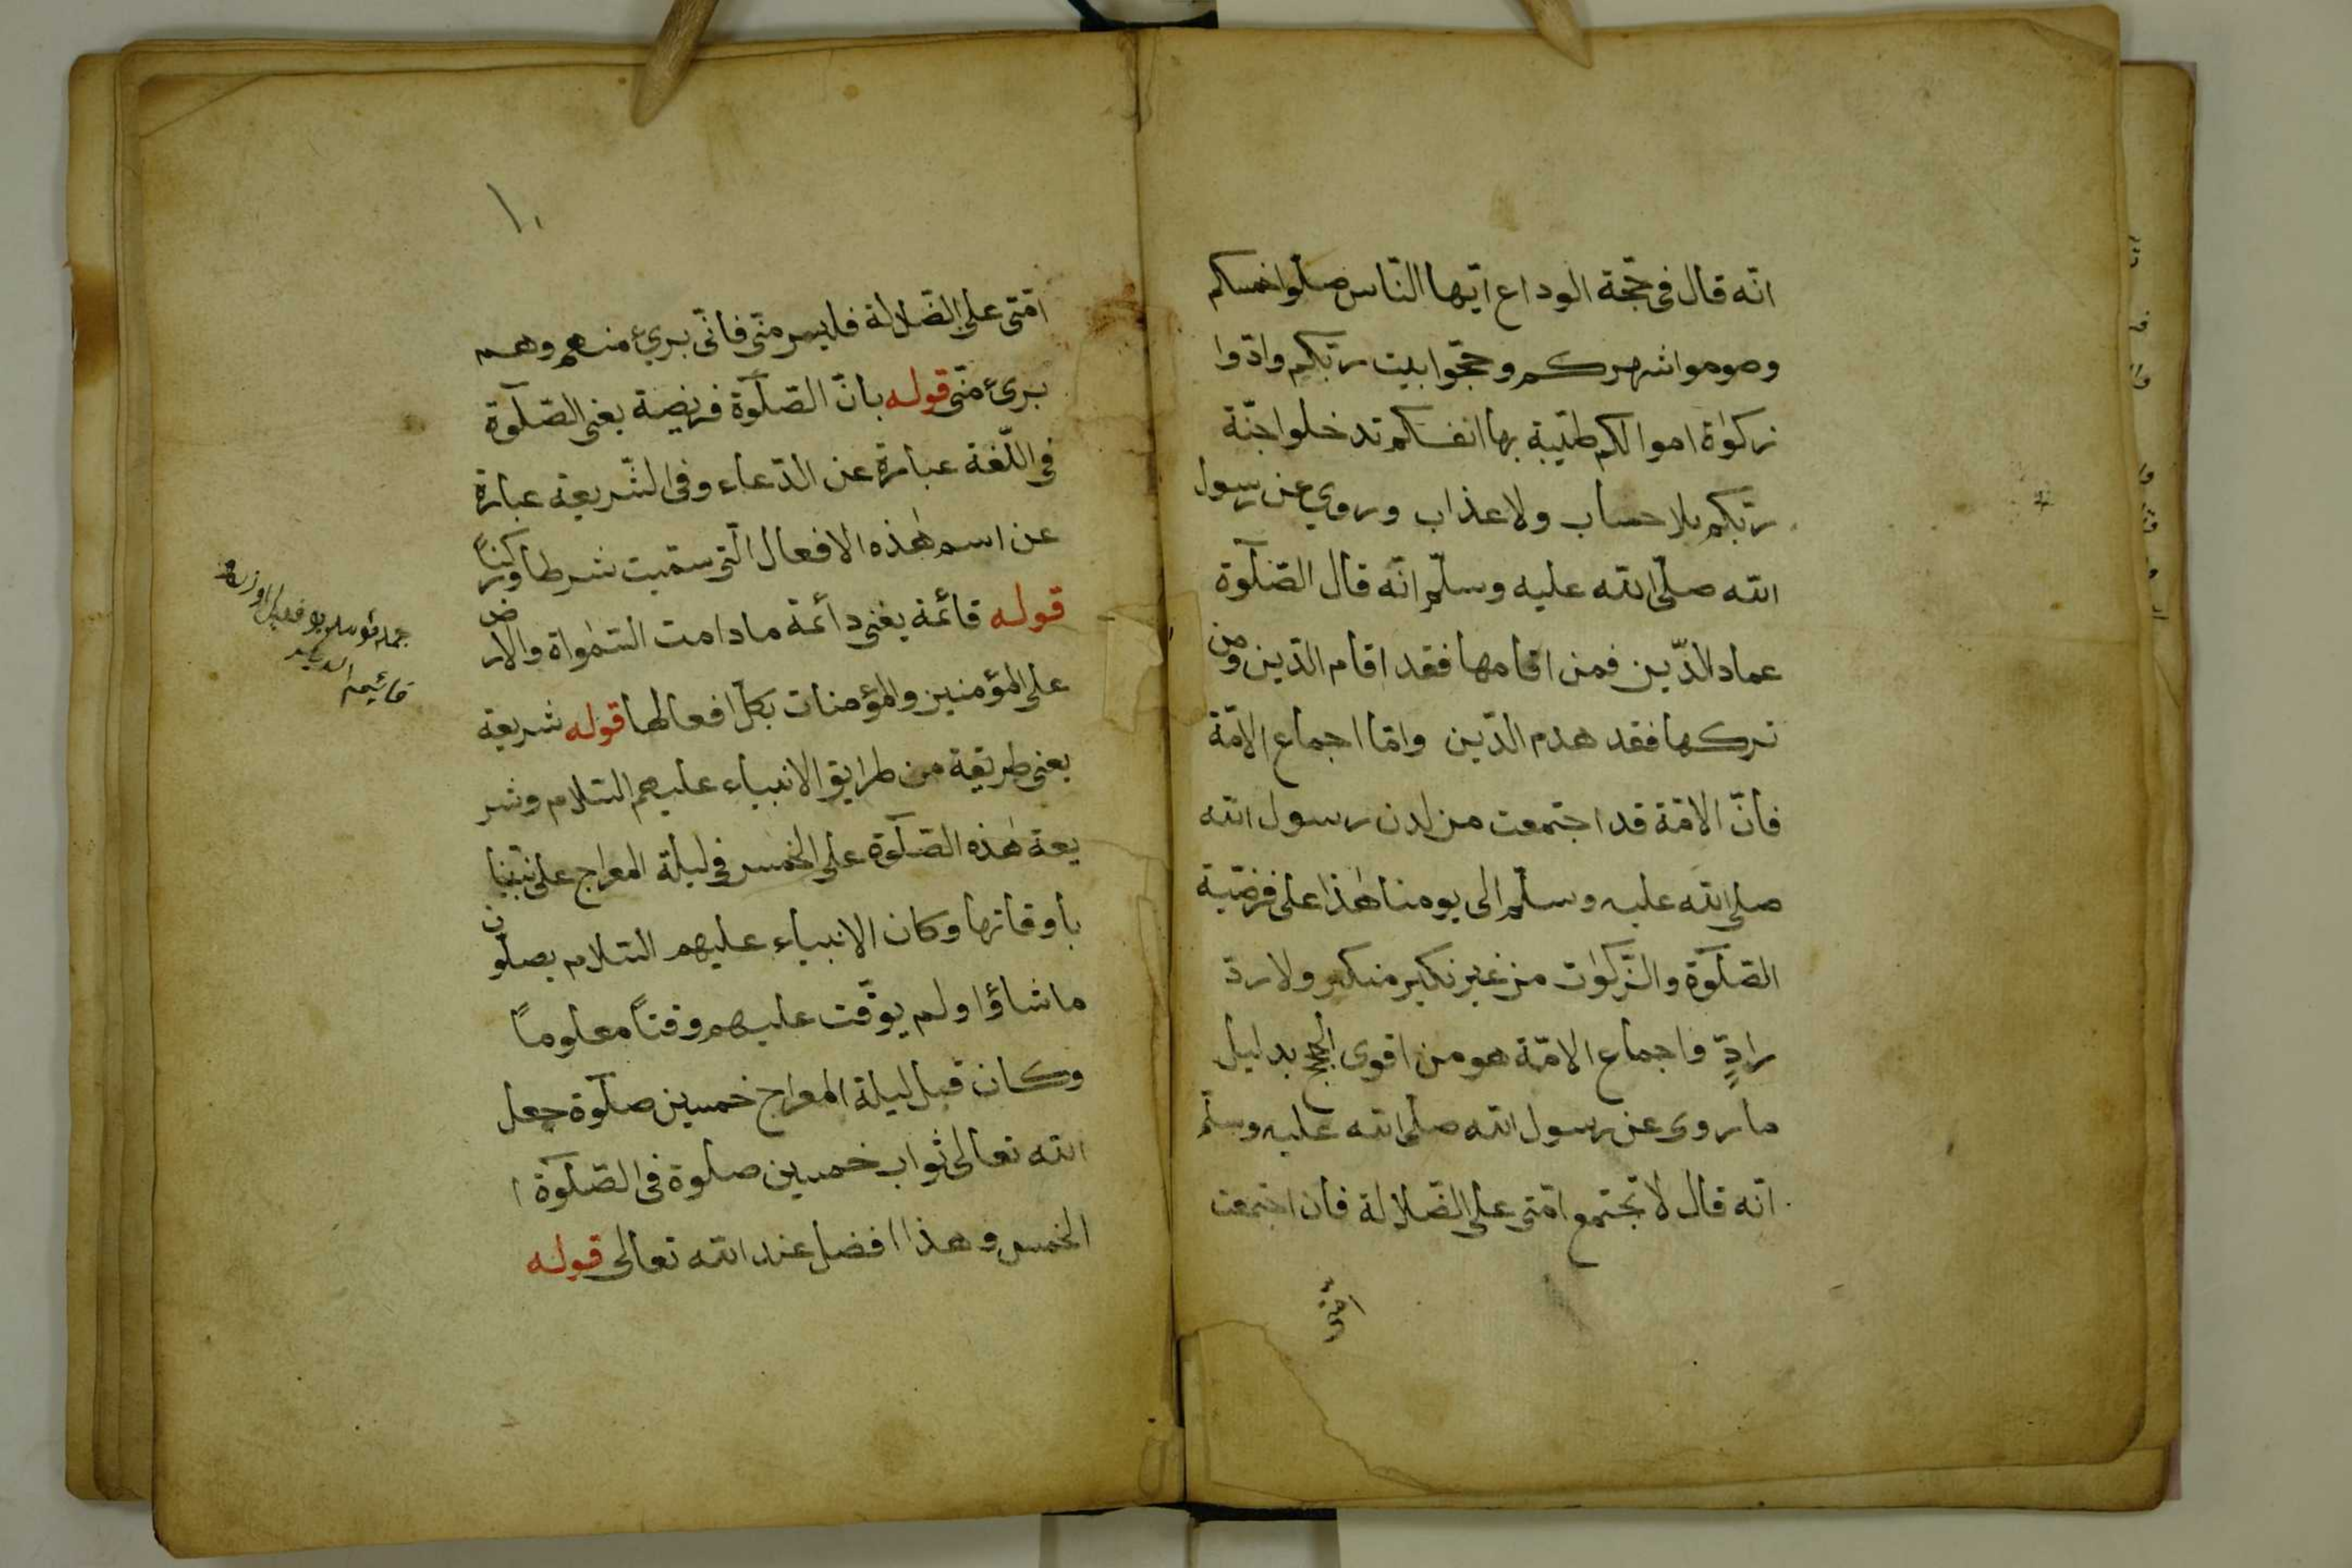 انّه قال فى حجّة الوداع ايّها النّاس صلّوا خمسكم
وصوموا شهركم وحجّوا بيت ربّكم وادّوا
زكوٰة اموالكم طيّبة بها انفسكم تدخلوا جنّة
ربّكم بلا حساب ولا عذاب وروي عن رسول
الله صلّى الله عليه وسلّم انّه قال الصّلوٓة
عماد الدّين فمن اقامها فقد اقام الدّين ومن
تركها فقد هدم الدّين وامّا اجماع الامّة
فانّ الامّة قد اجتمعت من لدن رسول الله
صلى الله عليه وسلّم الى يومنا هٰذا على فرضيّة
الصّلوٓة والزّكوٰت من غير نكير منكر ولا ردّ
رادٍّ واجماع الامّة هو من اقوى الحجج بدليل
ما روى عن رسول الله صلى الله عليه وسلّم
انه قال لا تجتمع امّتى على الضّلالة فان اجتمعت
امّتى
١٠
امّتى على الضّلالة فليس منّى فانّى بريء منهم وهم
برىء منّى قوله بانّ الصّلوٓة فريضة يعنى الصّلوٓة
فى اللّغة عبارة عن الدّعاء وفى الشّريعة عبارة
عن اسم هٰذه الافعال الّتى سمّيت شرطا وركناً
قوله قائمة يعنى دائمة ما دامت السّمٰواة والارض
على المؤمنين والمؤمنات بكلّ افعالها قوله شريعة
يعنى طريقة من طرايق الانبياء عليهم السّلام وشر
يعة هٰذه الصّلوٓة على الخمس فى ليلة المعراج على نبيّنا
باوقاتها وكان الانبياء عليهم السّلام يصلّون
ما شاؤا ولم يوقّت عليهم وقتاً معلوماً
وكان قبل ليلة المعراج خمسين صلوٓة جعل
الله تعالى ثواب خمسين صلوة فى الصّلوٓة ا
الخمس وهذا افضل عند الله تعالى قوله
قائيمه